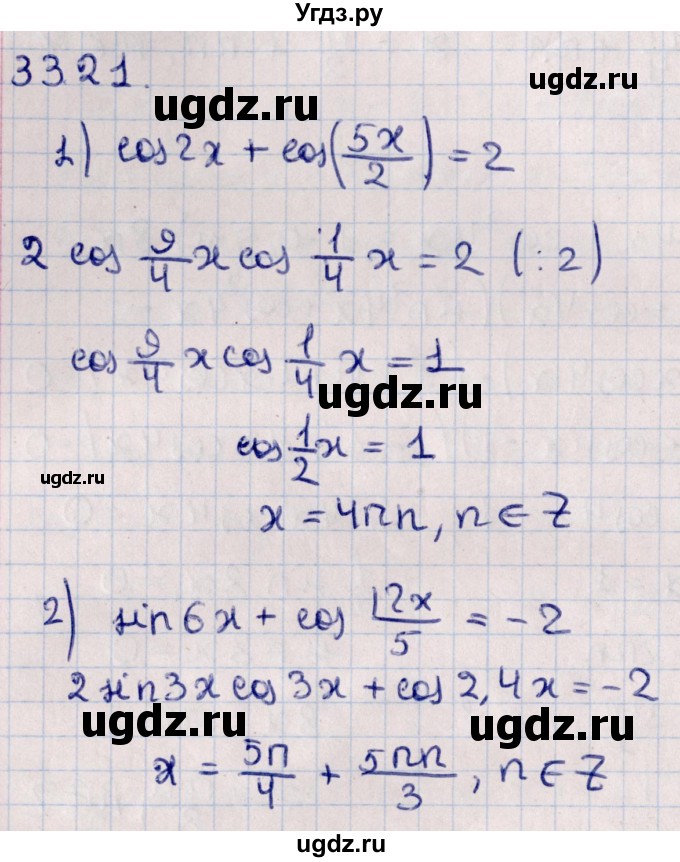 Угдз.ру
33.21.
ugdz.ru
1) cos2x + cos(5x/2) = 2
2 cos 9/4 x cos 1/4 x = 2 (:2)
cos 9/4 x cos 1/4 x = 1
ugdz.ru
cos 1/2 x = 1
ugdz.ru
x = 4πn, n ∈ Z
2) sin6x + cos 12x/5 = -2
2sin3xcos3x + cos2,4x = -2
ugdz.ru ugdz.ru
x = 5π/4 + 5πn/3, n ∈ Z
ugdz.ru